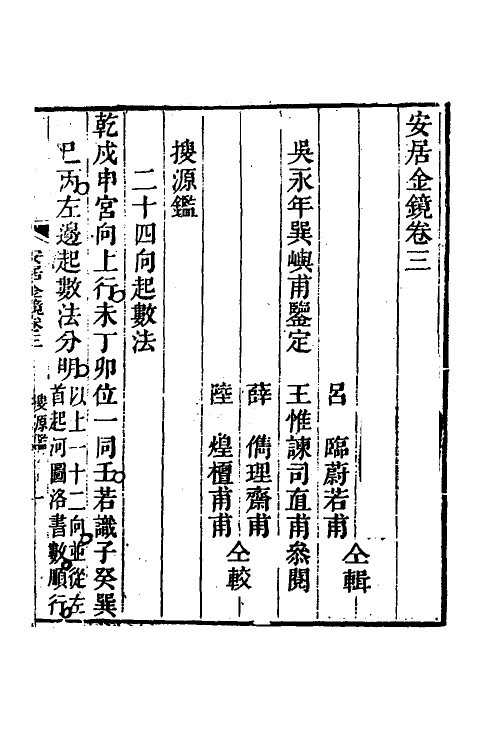 安居金鏡卷三
呂　臨蔚若甫
仝輯
吳永年巽嶼甫鑒定　王惟諫司直甫叅閱
薛　儁理齋甫
陸　煌檀甫甫
仝較
搜源鑑
二十四向起數法
乾戍申宮向上行未丁卯位一同壬若識子癸巽
巳丙左邊起數法分明以上一十二向並從左
首起河圖洛書數順行
安居金鏡卷三　搜源鑑　一